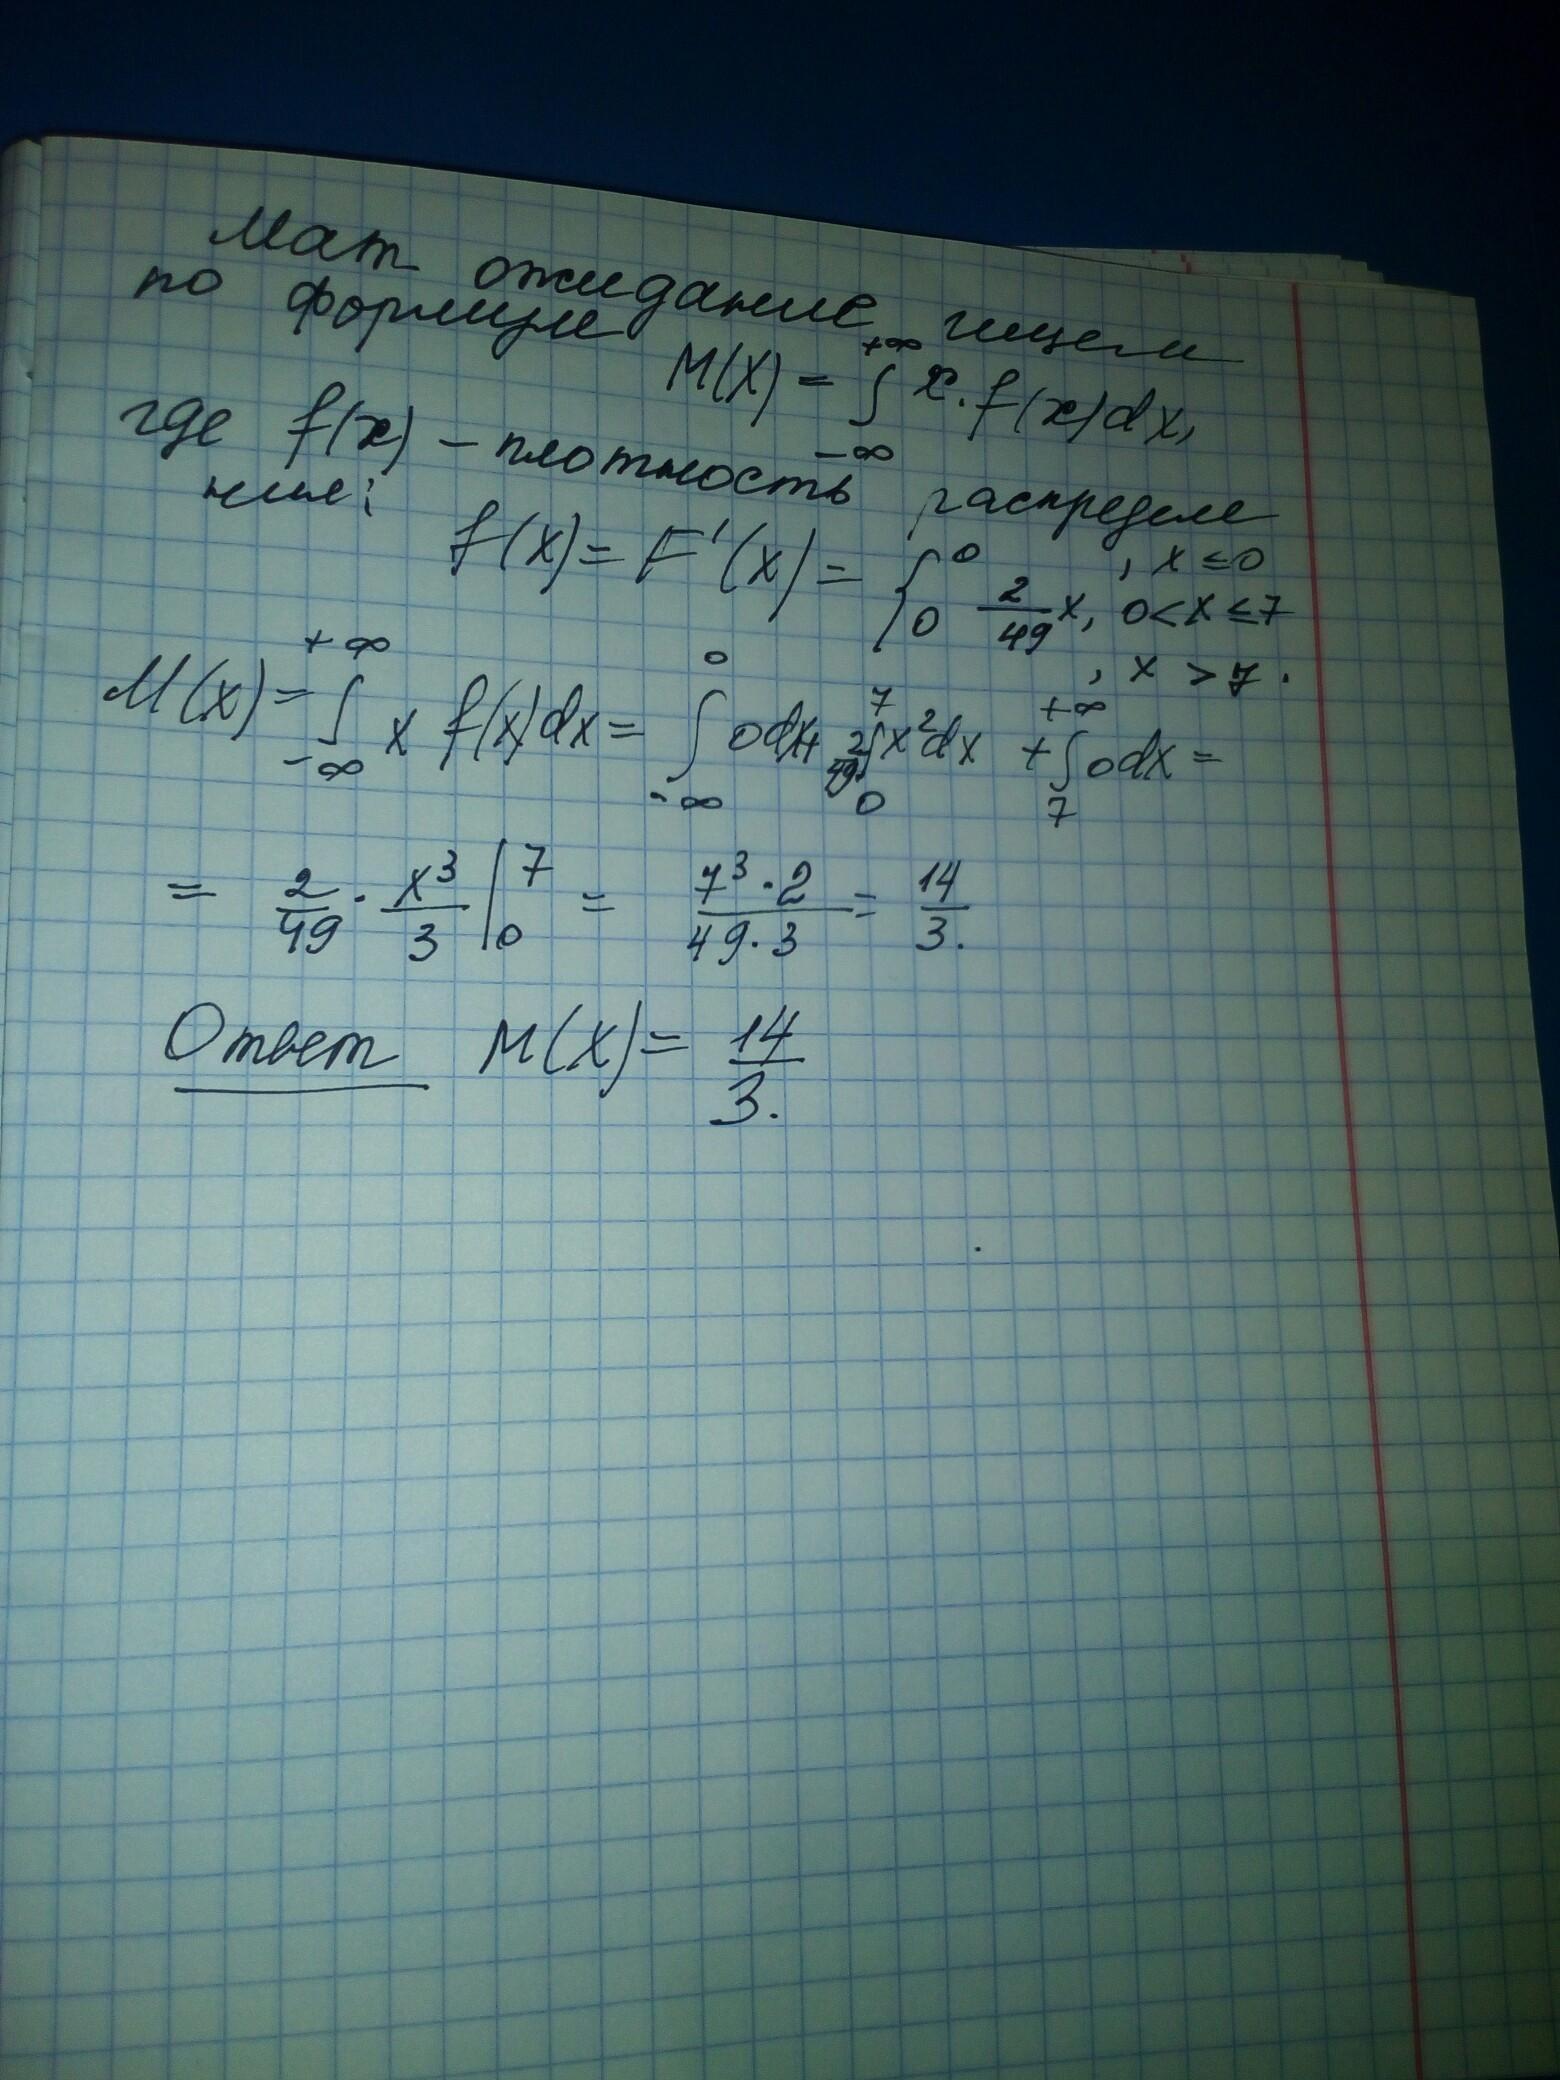 Мат ожидание ищем
по формуле
M(X) = ∫_{-∞}^{+∞} x · f(x)dx,
где f(x) – плотность распределе
ния:
f(x) = F'(x) = { 0 , x ≤ 0
2/49 x, 0 < x ≤ 7
0 , x > 7.
M(x) = ∫_{-∞}^{+∞} x f(x)dx = ∫_{-∞}^{0} 0dx + 2/49 ∫_{0}^{7} x² dx + ∫_{7}^{+∞} 0dx =
= 2/49 · x³/3 |_{0}^{7} = 7³·2/49·3 = 14/3.
Ответ M(X) = 14/3.